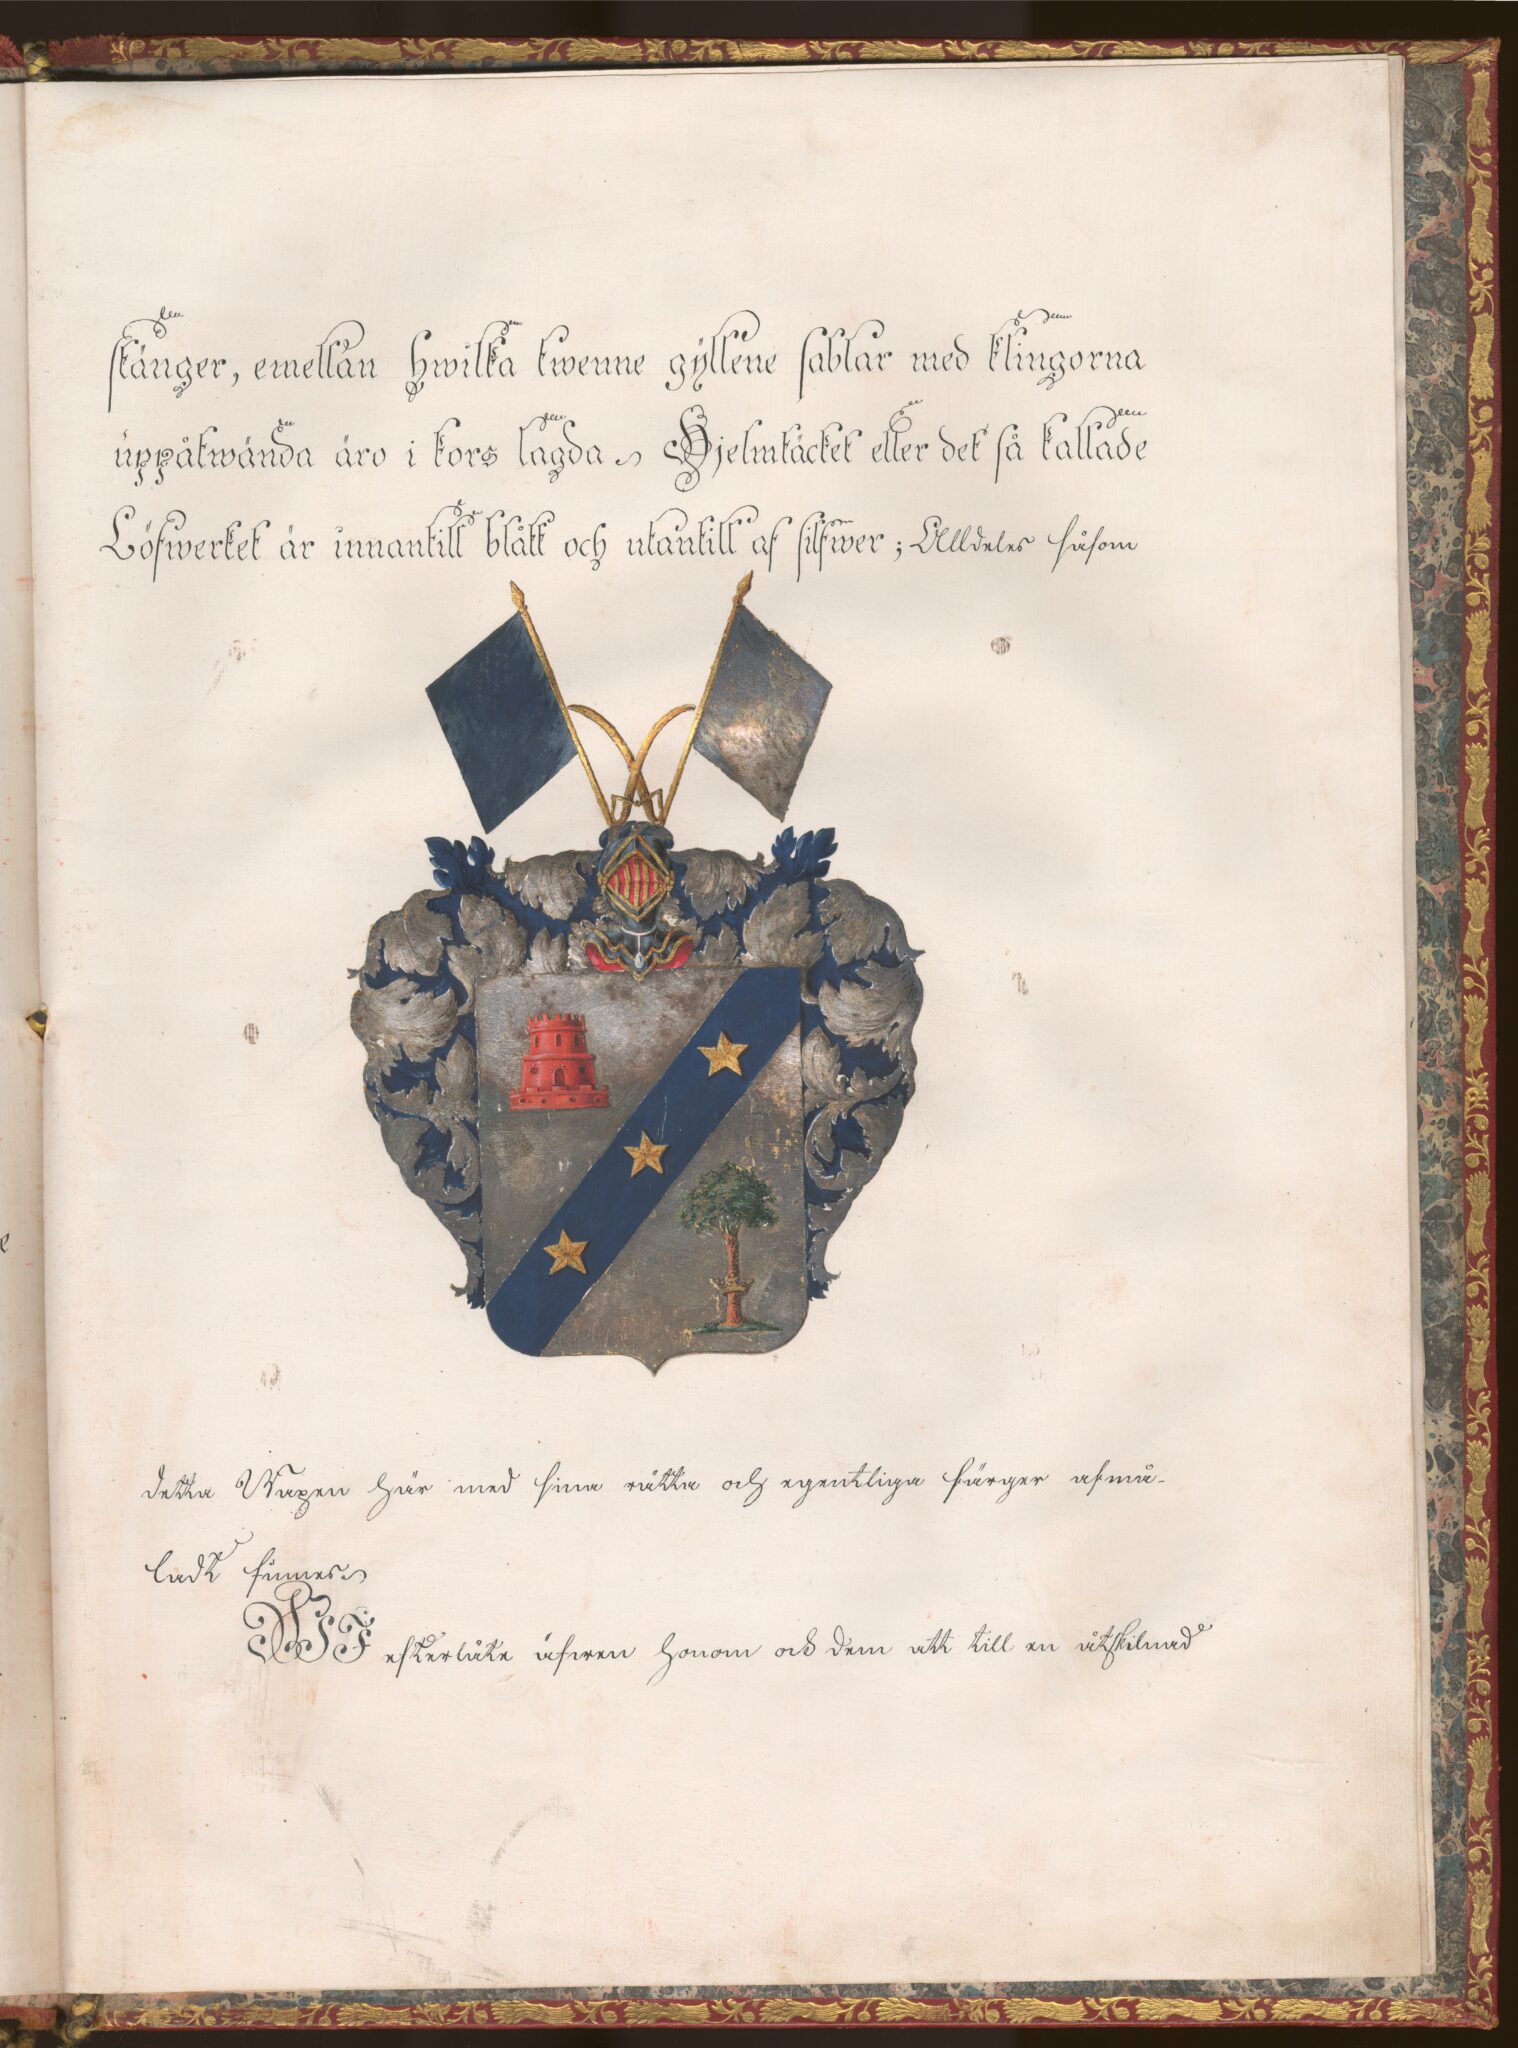 stänger, emellan hwilka twenne gyllene sablar med klingorna
uppåtwända äro i kors lagda. Hjelmtäcket eller det så kallade
Löfwerket är innantill blått och utantill af silfwer; Alldeles såsom
detta Wapen här med sina rätta och egentliga färger afmå-
ladt finnes.
WJ efterlåte äfwen honom och dem att till en åtskilnad